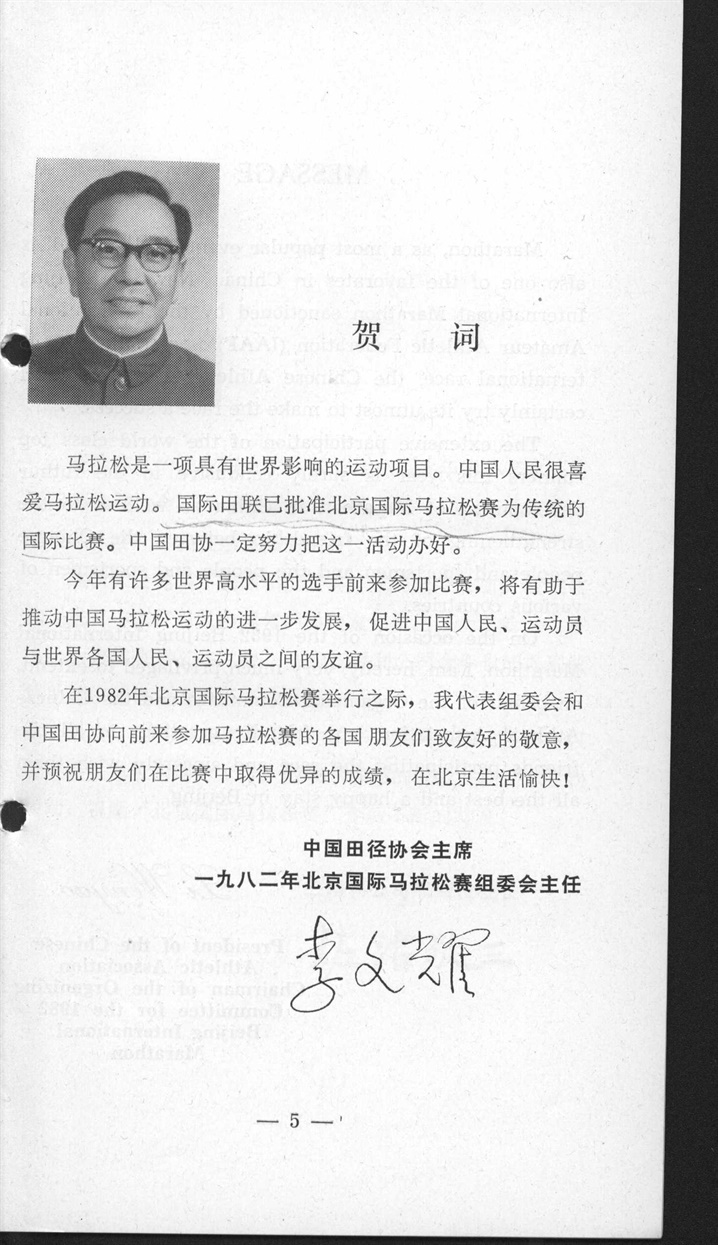 贺 词
马拉松是一项具有世界影响的运动项目。中国人民很喜
爱马拉松运动。国际田联已批准北京国际马拉松赛为传统的
国际比赛。中国田协一定努力把这一活动办好。
今年有许多世界高水平的选手前来参加比赛，将有助于
推动中国马拉松运动的进一步发展，促进中国人民、运动员
与世界各国人民、运动员之间的友谊。
在1982年北京国际马拉松赛举行之际，我代表组委会和
中国田协向前来参加马拉松赛的各国朋友们致友好的敬意，
并预祝朋友们在比赛中取得优异的成绩，在北京生活愉快！
中国田径协会主席
一九八二年北京国际马拉松赛组委会主任
李文耀
— 5 —